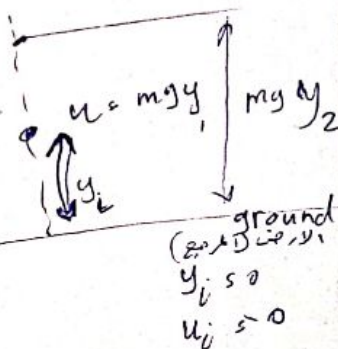 u = mgy₁
mg y₂
yᵢ
ground
(الارض (المرجع
yᵢ = 0
uᵢ = 0